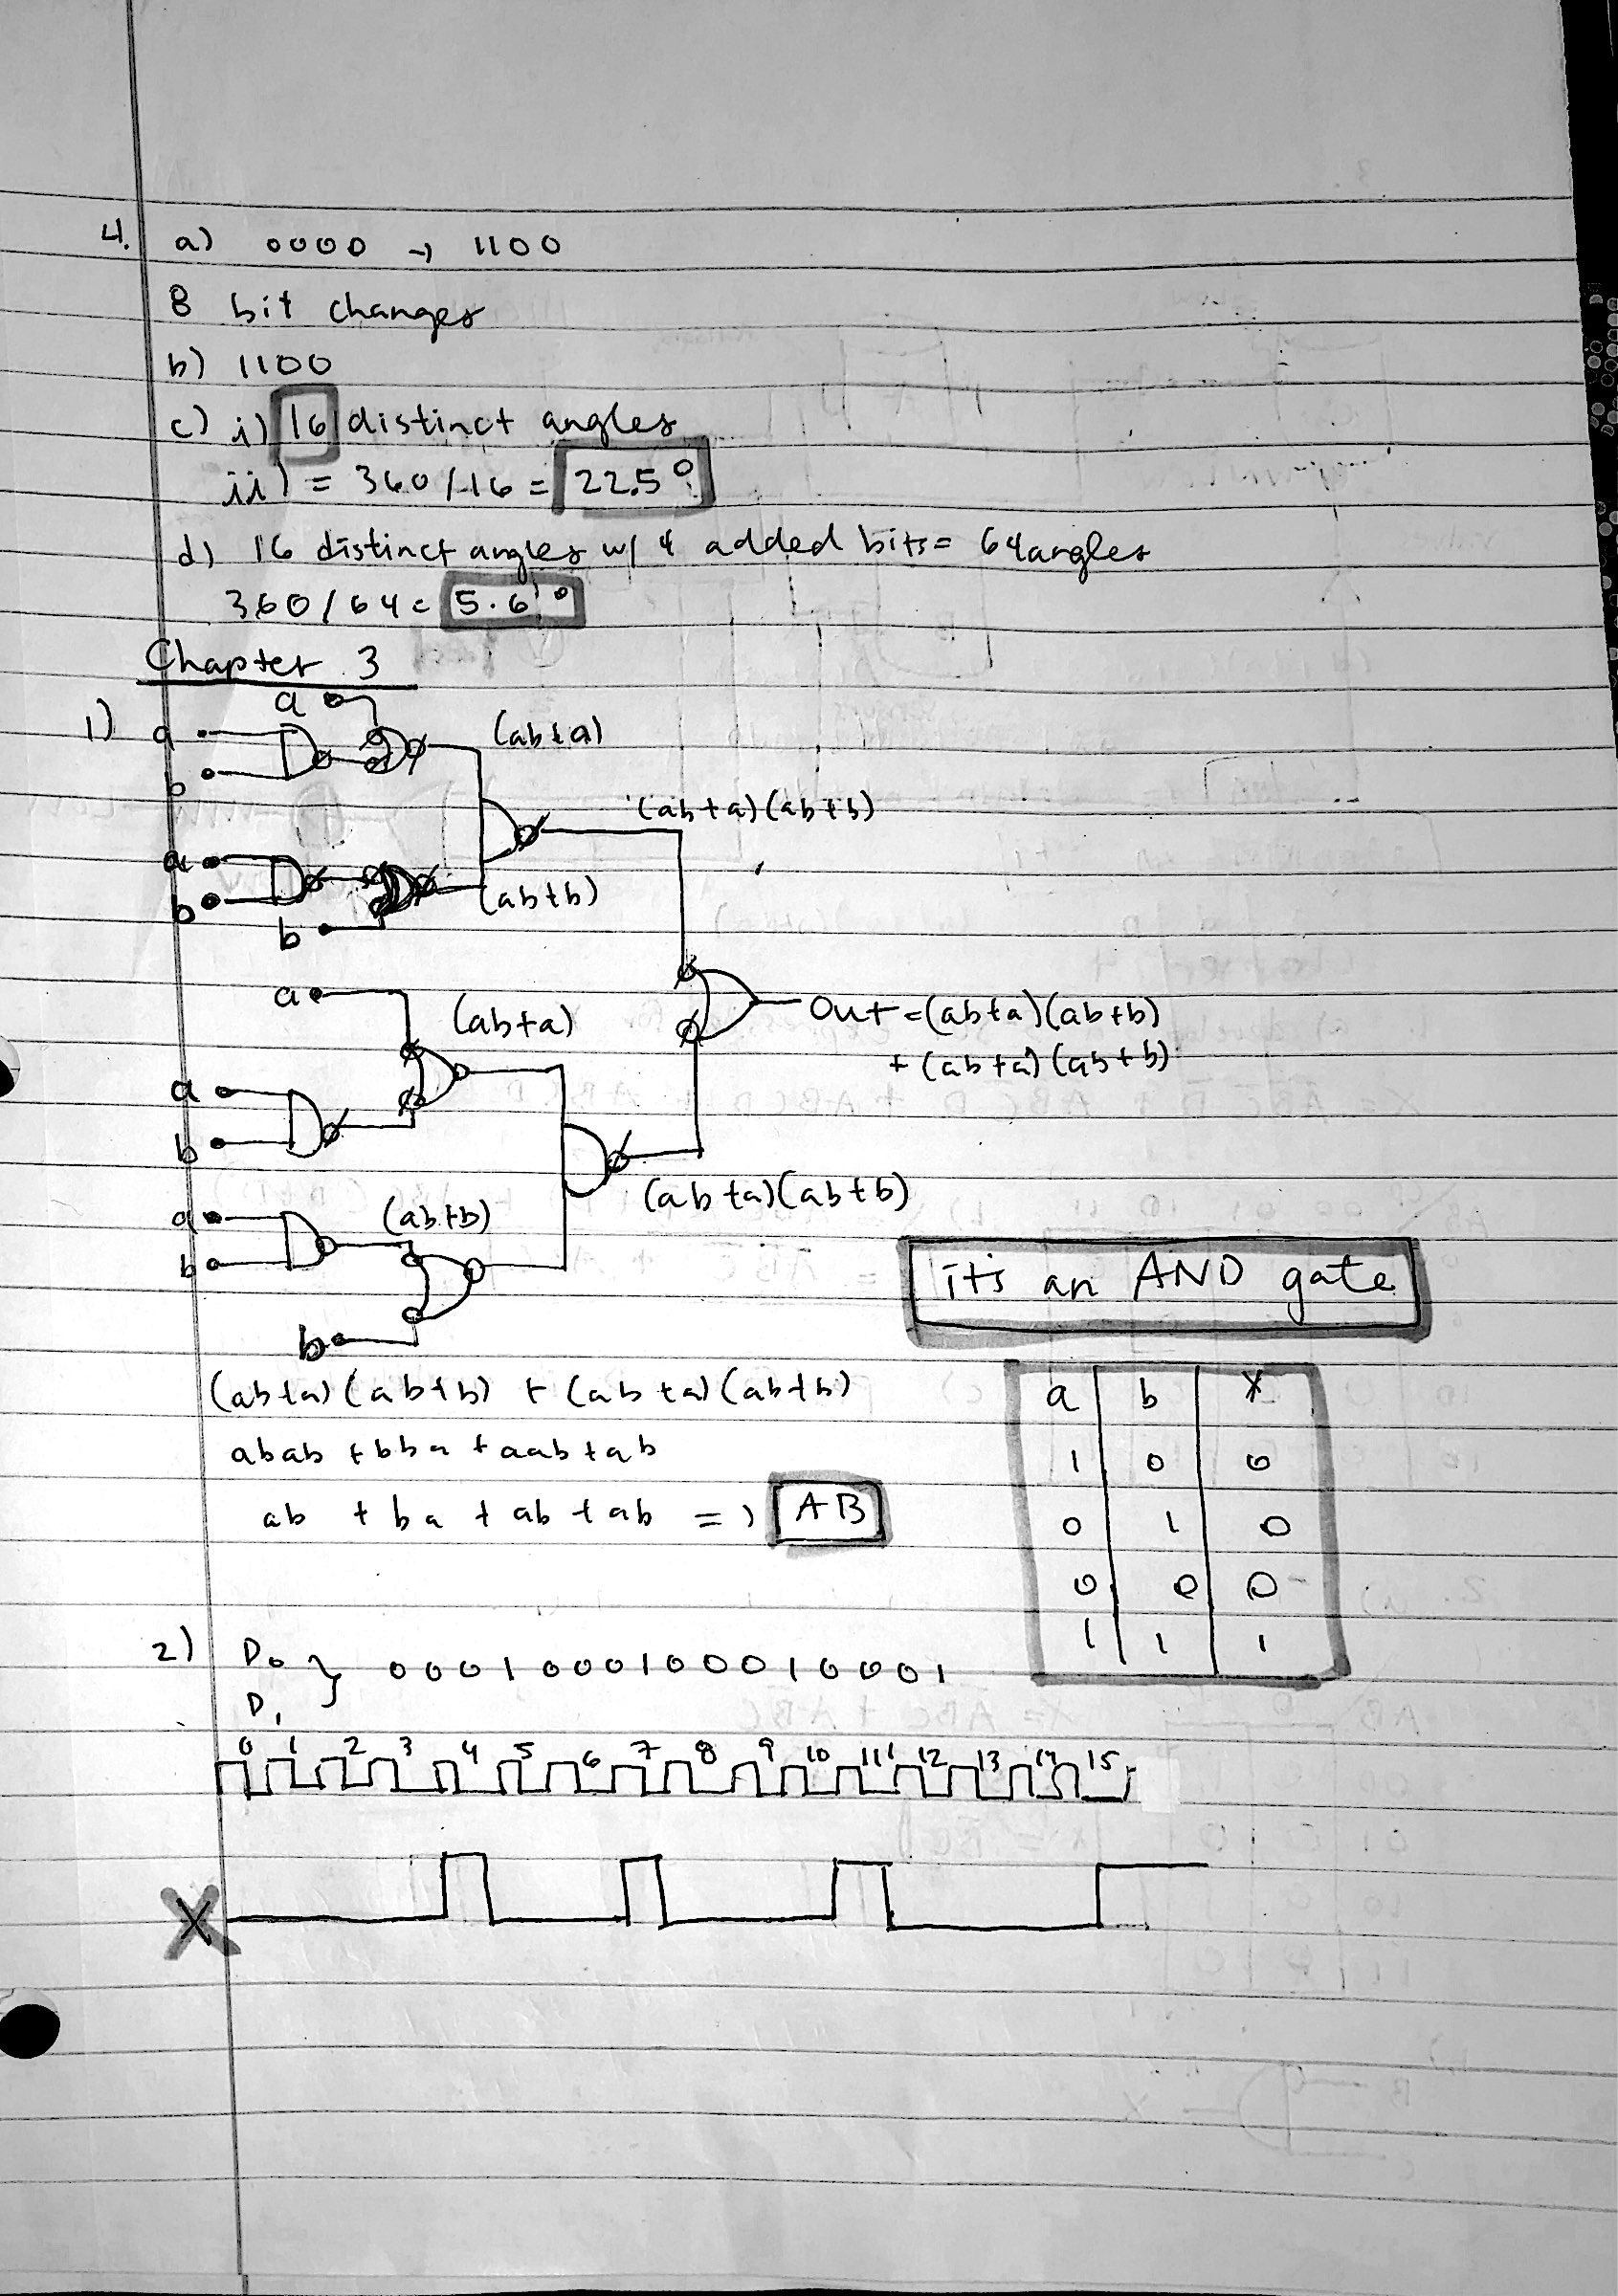 4. a) 0000 → 1100
8 bit changes
b) 1100
c) i) 16 distinct angles
ii) = 360/16 = 22.5°
d) 16 distinct angles w/ 4 added bits = 64 angles
360/64 = 5.6°
Chapter 3
a
1) a (ab+a)
b
(ab+a)(ab+b)
a
b (ab+b)
b
a (ab+a)
Out = (ab+a)(ab+b)
+ (ab+a)(ab+b)
a
b
(ab+a)(ab+b)
a (ab+b)
b
its an AND gate
b
(ab+a)(ab+b) + (ab+a)(ab+b)
abab + bba + aab + ab
ab + ba + ab + ab => AB
a b X
1 0 0
0 1 0
0 0 0
1 1 1
2) D0 } 0001000100010001
D1
0 1 2 3 4 5 6 7 8 9 10 11 12 13 14 15
X